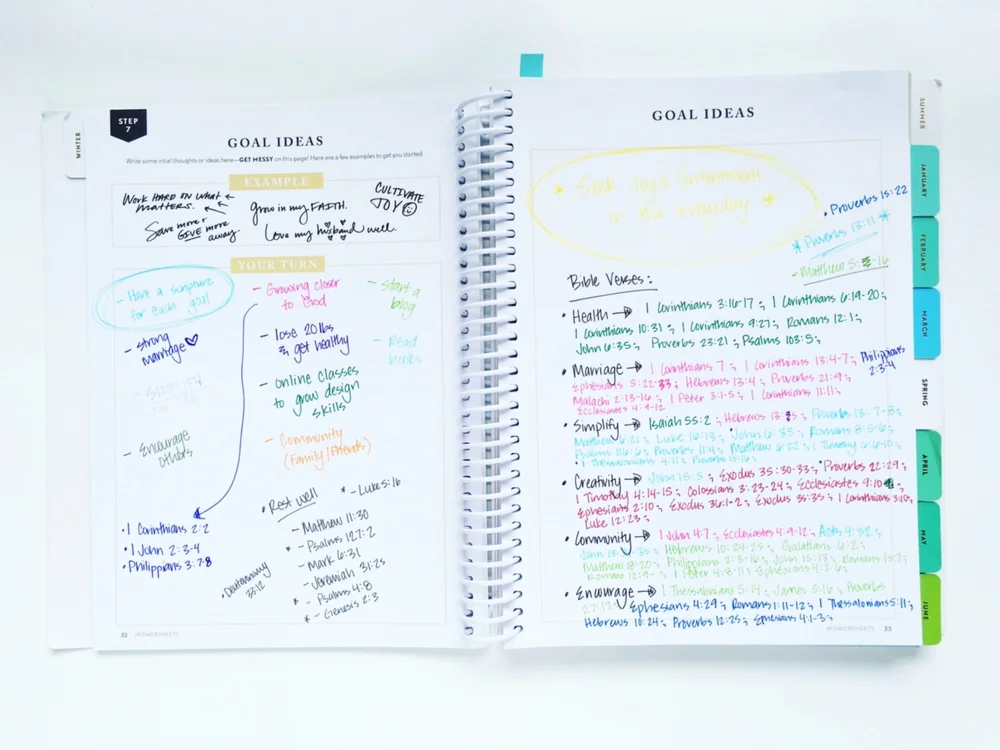 STEP
7
WINTER
GOAL IDEAS
Write some intial thoughts or ideas here—GET MESSY on this page! Here are a few examples to get you started.
EXAMPLE
WORK HARD ON WHAT
MATTERS.
Save more +
GIVE more
away.
Grow in my FAITH.
Love my husband well.
CULTIVATE
JOY
YOUR TURN
- Have a scripture
for each goal
- strong
marriage
- Simplify
- Encourage
others
• 1 Corinthians 2:2
• 1 John 2:3-4
• Philippians 3:7-8
- Growing closer
to God
- lose 20 lbs
& get healthy
- online classes
to grow design
skills
- Community
(Family/Friends)
- start a
blog
- Read
books
• Rest well
* - Luke 5:16
- Matthew 11:30
* - Psalms 127:2
- Mark 6:31
- Jeremiah 31:25
* - Psalms 4:8
* - Genesis 2:3
• Deuteronomy
33:12
32 #POWERSHEETS
GOAL IDEAS
* Seek Joy & Contentment
in the everyday *
• Proverbs 15:22
* Proverbs 13:11 *
- Matthew 5: -16
Bible Verses:
• Health → 1 Corinthians 3:16-17; 1 Corinthians 6:19-20;
1 Corinthians 10:31; 1 Corinthians 9:27; Romans 12:1;
John 6:35; Proverbs 23:21; Psalms 103:5;
• Marriage → 1 Corinthians 7; 1 Corinthians 13:4-7; Philippians
2:3-4
Ephesians 5:22-33; Hebrews 13:4; Proverbs 21:9;
Malachi 2:13-16; 1 Peter 3:1-5; 1 Corinthians 11:11;
Ecclesiastes 4:9-12
• Simplify → Isaiah 55:2; Hebrews 13:5; Proverbs 13:7-8;
Matthew 6:21; Luke 16:13; John 6:35; Romans 8:5-6;
Psalms 116:6; Proverbs 11:4; Matthew 6:22; 1 Timothy 6:6-10;
1 Thessalonians 4:11; Proverbs 15:16;
• Creativity → John 15:5; Exodus 35:30-33; Proverbs 22:29;
1 Timothy 4:14-15; Colossians 3:23-24; Ecclesiastes 9:10;
Ephesians 2:10; Exodus 36:1-2; Exodus 35:35; 1 Corinthians 3:10;
Luke 12:23;
• Community → 1 John 4:7; Ecclesiastes 4:9-12; Acts 4:32;
John 13: -35; Hebrews 10:24-25; Galatians 6:2;
Matthew 18:20; Philippians 2:3-16; John 15:13; Romans 15:7;
Romans 12: ; 1 Peter 4:8-11; Ephesians 4:2-6;
• Encourage → 1 Thessalonians 5:14; James 5:16; Proverbs
27:17; Ephesians 4:29; Romans 1:11-12; 1 Thessalonians 5:11;
Hebrews 10:24; Proverbs 12:25; Ephesians 4:1-3;
#POWERSHEETS 33
SUMMER
JANUARY
FEBRUARY
MARCH
SPRING
APRIL
MAY
JUNE